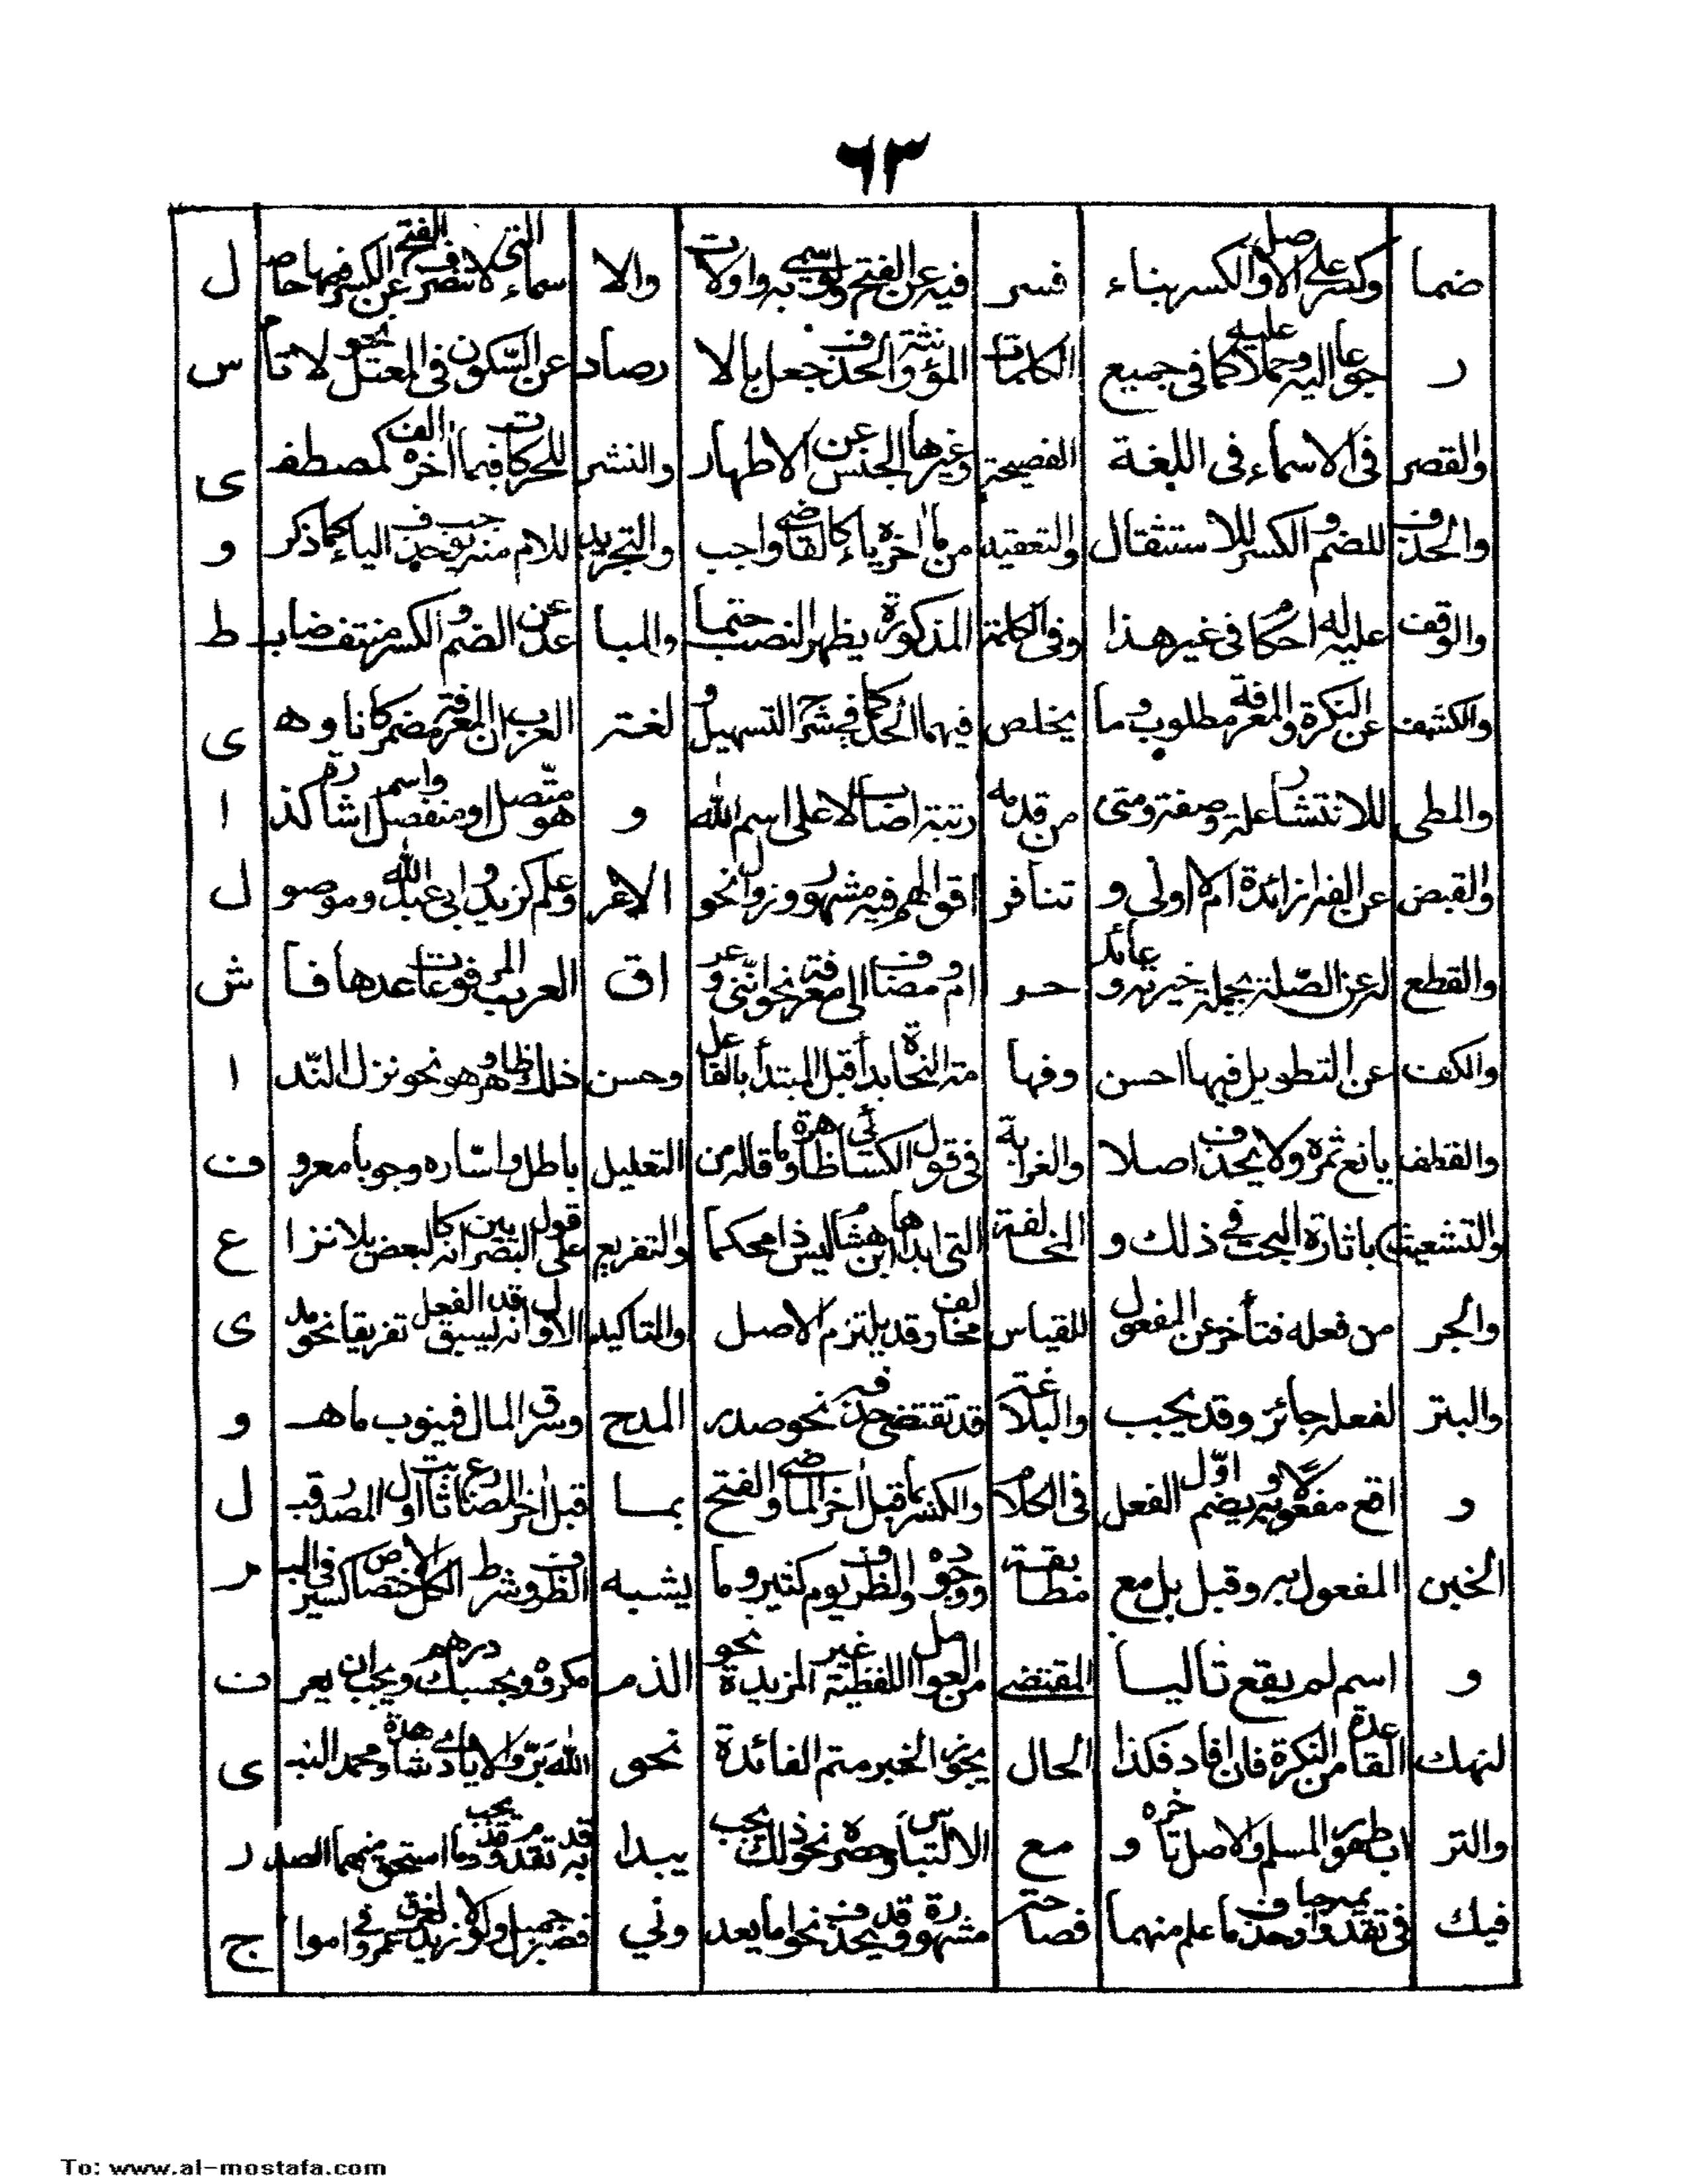 ٦٣
ضما وكسر على الاصل والكسر بناء فسر فيه عن الفتح ولو سمى به واولات والا سماء التى لا تنصرف عن الكسر الفتح فيها حاصـ ل
ر جوعا اليه وحملا عليه كما فى جميع الكلمات المؤنثة والحذف جعل بالا رصاد عن السّكون فى المعتل نحو لا تأ س
والقصر فى الاسماء فى اللغة الفصيحة وغيرها الجنس عن الاظهار والنشر للحركات فيما اخره الف كمصطفـ ى
والحذف للضم والكسر للاستثقال والتعقيد من ما اخره ياء كالقاضى واجب والتجريد للام منه يوجب حذف الياء كما ذكر و
والوقف عليه له احكام فى غير هذا وفى الكلمة المذكورة يظهر النصب حتما والمبا عدة عن الضم والكسر منتف ضابـ ط
والكشف عن النكرة والمعرفة مطلوب وما يخلص فيهما الحد كما فى شرح التسهيل و لغة العرب ان المعرفة مضمر كانا وهـ ى
والمطى للانتشار علة وصفة ومتى من قدمه رتبة اصاب الا على اسم الله و هو متّصل او منفصل واسم اشارة كذ ا
والقبض عن الفه ازائدة ام لا اولى و تنافر اقوالهم فيه مشهور وزول نحو الاغر وعلم كزيد وابى عبد الله وموصو ل
والقطع له عن الصّلة بجملة خبرية وعائد حـر ام ومضاف الى معرفة نحو اننى وعر اق العرب المر فوعات عدها فا ش
والكف عن التطويل فيها احسن وفيها مة النحاة بدأ قبل المبتدأ بالفاعل وحسن ذلك ظاهر وهو نحو نزل النّد ا
والقطف يانع ثمره ولا يحذف اصلا والغرابة فى قول الكسائى ظاهرة وما قاله من التعليل باطل واسّاره وجوبا معرو ف
والتشعيث باثارة البحث فى ذلك و المخالفة التى ابداها ابن هشام ليس ذا محكما والتفريع على قول البصريين انه كالبعض بلا نزا ع
والجر من فعله فتأخر عن المفعول للقياس مخالف وقد يلتزم الاصل والتاكيد الاول انه ليسبق قد الفعل تفريقا نحو مد ى
والبتر لفعله جائز وقد يجب والبلاغة قد تقتضى حذفه نحو صدر المدح وسرق المال فينوب ما هـ و
و اقع مفعولا به ويضم اوّل الفعل فى الكلام والكسر ما قبل اخر الماضى والفتح بمـا قبل اخر المضارع ثابت اول المصدر قبـ ل
الخبن المفعول به وقبل بل مع مطابقة ووجوده والظرف يوم كثير وما يشبه الظرف وشرط الكل الاختصاص كسير فى البـ ر
و اسم لم يقع تاليا المقتضى من العوامل اللفظية غير المزيدة نحو الذم مكروه وبحسبك درهم ويجب ان يعر ف
لنهك القاعدة من النكرة فان افاد فكذا الحال يجوز الخبر متم الفائدة نحو الله بَرّ والايادى شاهدة ومحمد النبـ ى
والتر اب طهور المسلم والاصل تأخره و مع الالتباس وحصره نحو ذلك يجب يبدا به قد تقدم وقد يجب وما استحق منهما الصد ر
فيك فى تقديمه واجبا وحذف ما علم منهما فصاحته مشهورة وقد يحذف نحو ما يعد وني فصبر جميل ولولا زيد لغرق عمرو فى اموا ج
To: www.al-mostafa.com